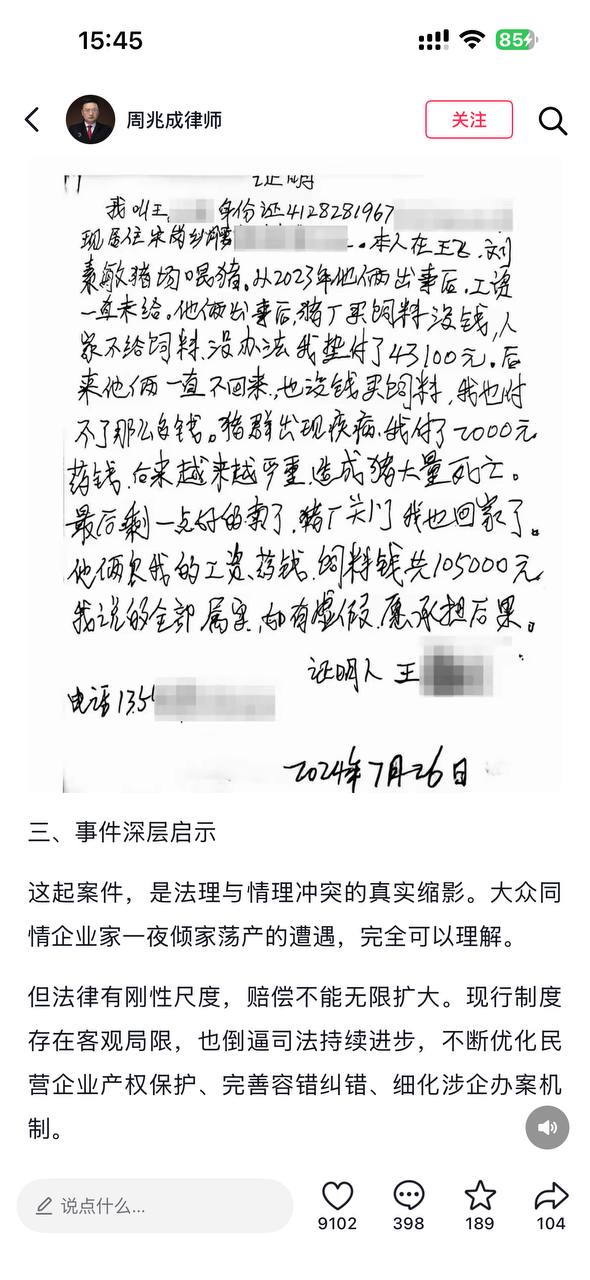 15:45
85
周兆成律师
关注
证明
我叫王 身份证4128281967
现居住宋岗乡 。本人在王飞、刘
素敏猪场喂猪。从2023年他俩出事后,工资
一直未给。他俩出事后,猪厂买饲料没钱,人
家不给饲料,没办法我垫付了43100元。后
来他俩一直不回来,也没钱买饲料,我也付
不了那么多钱。猪群出现疾病,我付了2000元
药钱,后来越来越严重,造成猪大量死亡。
最后剩一点好的卖了,猪厂关门我也回家了。
他俩欠我的工资、药钱、饲料钱共105000元
我说的全部属实,如有虚假,愿承担后果。
证明人 王
电话135
2024年7月26日
三、事件深层启示
这起案件,是法理与情理冲突的真实缩影。大众同
情企业家一夜倾家荡产的遭遇,完全可以理解。
但法律有刚性尺度,赔偿不能无限扩大。现行制度
存在客观局限,也倒逼司法持续进步,不断优化民
营企业产权保护、完善容错纠错、细化涉企办案机
制。
说点什么...
9102
398
189
104